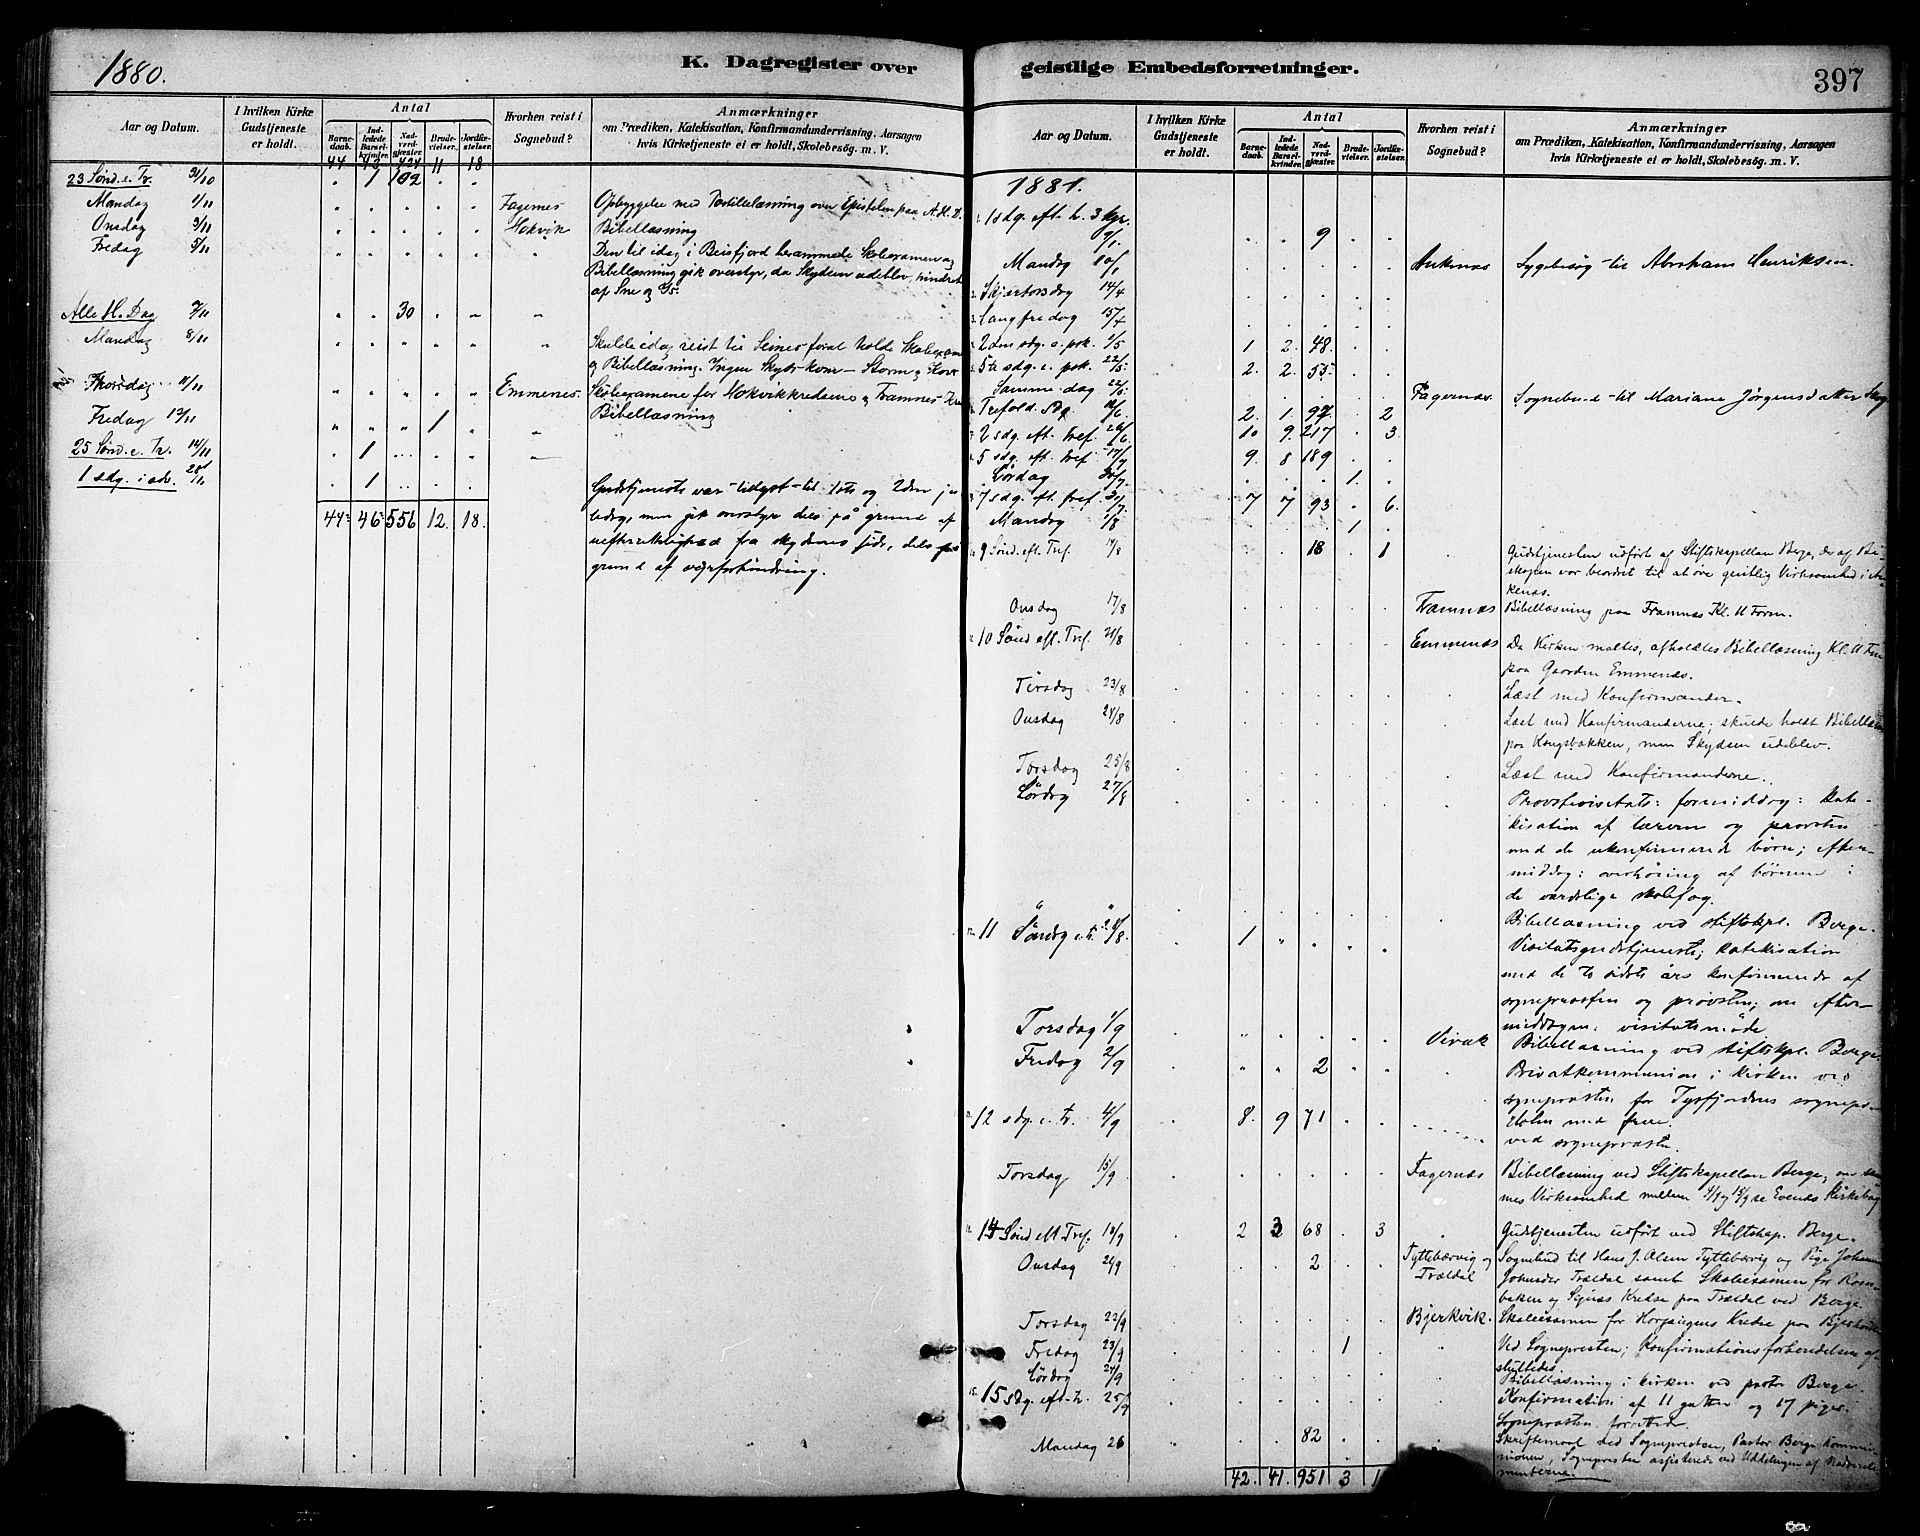 1880.
K. Dagregister over
Aar og Datum.
I hvilken Kirke Gudstjeneste er holdt.
Antal
Barnedaab.
Indledede Barselkvinder.
Nadverdgjæster.
Brudevielser.
Jordfæstelser.
Hvorhen reist i Sognebud?
Anmærkninger
om Prædiken, Katekisation, Konfirmandundervisning, Aarsagen
hvis Kirketjeneste ei er holdt, Skolebesøg. m. V.
44 43 424 11 18
23 Sønd. e. Tr. 31/10 " 1 102 " "
Mandag 1/11 Fagernes Opbyggelse med Textlæsning over Epistelen paa A. H. D.
Onsdag 3/11 Hokvik Bibellæsning
Fredag 5/11 Den til idag i Beisfjord berammede Skoleexamen og
Bibellæsning gik overstyr, da Skydsen udeblev, hindret
af Sne og Is.
Alle H. Dag 7/11 " " 30 " "
Mandag 8/11 Skulde idag reist til Seines for at holde Skoleexamen
og Bibellæsning. Ingen Skyds kom - Storm og
Thorsdag 11/11 Emmenes. Skoleexamene for Hokvikkredsene og Framnes
Fredag 12/11 " " " 1 " Bibellæsning
25 Sønd. e. Tr. 14/11 " 1
1 sdg. i adv. 28/11 . 1 Gudstjeneste var tillyst til 1ste og 2den jule
44 46 556 12. 18. dag, men gik overstyr dels på grund af
uefterrettelighed fra skydsens side, dels på
grund af vejrforhindring.
geistlige Embedsforretninger.
397
Aar og Datum.
I hvilken Kirke Gudstjeneste er holdt.
Antal
Barnedaab.
Indledede Barselkvinder.
Nadverdgjæster.
Brudevielser.
Jordfæstelser.
Hvorhen reist i Sognebud?
Anmærkninger
om Prædiken, Katekisation, Konfirmandundervisning, Aarsagen
hvis Kirketjeneste ei er holdt, Skolebesøg. m. V.
1881.
1 sdg. eft. h. 3 kgr.
9/1. . . 9 . .
Mandag 10/1 Ankenæs Sygebesøg til Abraham Henriksen.
Skjærtorsdag 14/4
Langfredag 15/4
2den sdg. e. psk. 1/5 1 2. 48.
5te sdg. e. psk. 22/5. 2. 2. 55.
Samme dag 22/5. Fagernæs. Sognebud til Mariane Jørgensdatter
Trefold. Sdg. 12/6. 2. 1. 97. . 2
2 sdg. eft. Tref. 26/6 10 9. 217 . 3.
5 sdg. eft. Tref. 17/7 9. 8 189 . .
Lørdag 30/7 . . . 1. .
7 sdg. eft. Tref. 31/7 7 7 93 . 6.
Mandag 1/8 . . . 1 .
9 Sønd. eft. Tref. 14/8 . . 18 . 1 Gudstjenesten udført af Stiftskapellan Berge, der af Bi-
skopen var beordret til at øve geistlig Virksomhed i An-
kenæs.
Onsdag 17/8 Framnæs Bibellæsning paa Framnæs Kl. 11 Form.
10 Sønd. eft. Tref. 21/8 Emmenæs Da Kirken maltes, afholdtes Bibellæsning Kl. 11 Form
paa Gaarden Emmenæs.
Tirsdag 23/8 Læst med Konfirmander.
Onsdag 24/8 Læst med Konfirmanderne; skulde holdt Bibellæsn
paa Kongsbakken, men Skydsen udeblev.
Torsdag 25/8 Læst med Konfirmanderne.
Lørdag 27/8 Provstivisitats: formiddag: kate-
kisation af læreren og provsten
med de ukonfirmerede børn; efter-
middag: overhøring af børnene i
de værdslige skolefag.
Bibellæsning ved stiftskpl. Berge.
11 Søndg e. tr. 28/8. 1 " " " " Visitatsgudstjeneste; katekisation
med de to sidste års konfirmerede af
sognepræsten og provsten; om efter-
middagen: visitatsmøde
Torsdag 1/9 Virak Bibellæsning ved stiftskpl. Berge.
Fredag 2/9 " " 2 Privatkommunion i kirken ved
sognepræsten for Tysfjordens sognepr.
Holm med frue.
12 sdg. e. tr. 4/9 8. 9 71 . . ved sognepræsten.
Torsdag 15/9 Fagernæs Bibellæsning ved Stiftskapellan Berge, om
Virksomhed mellem 4/9 og 15/9 se Evenæs Kirkebog
14 Sønd eft Tref. 18/9 2 3 68 . 3 Gudstjenesten udført ved Stiftskap. Berge.
Onsdag 21/9 . . 2 Tyttebærvig og Trældal Sognebud til Hans J. Olsen Tyttebærvig og Pige
Trældal samt Skoleexamen for
og Kredse paa Trældal ved Berge.
Torsdag 22/9 Bjerkvik. Skoleexamen for Herjangens Kredse paa Bjerkvik
Fredag 23/9 . . . 1 Ved Sognepresten; Konfirmationsforberedelsen af-
sluttedes.
Lørdag 24/9 Bibellæsning i kirken ved pastor Berge.
15 sdg. eft. tr. 25/9 Konfirmation af 11 gutter og 17 piger.
Sognepræsten forrettede
Mandag 26 82 Skriftemaal ved Sognepræsten, Pastor Berge Kommu-
nionen, Sognepresten assisterede ved Uddelingen af
42. 41. 951 3